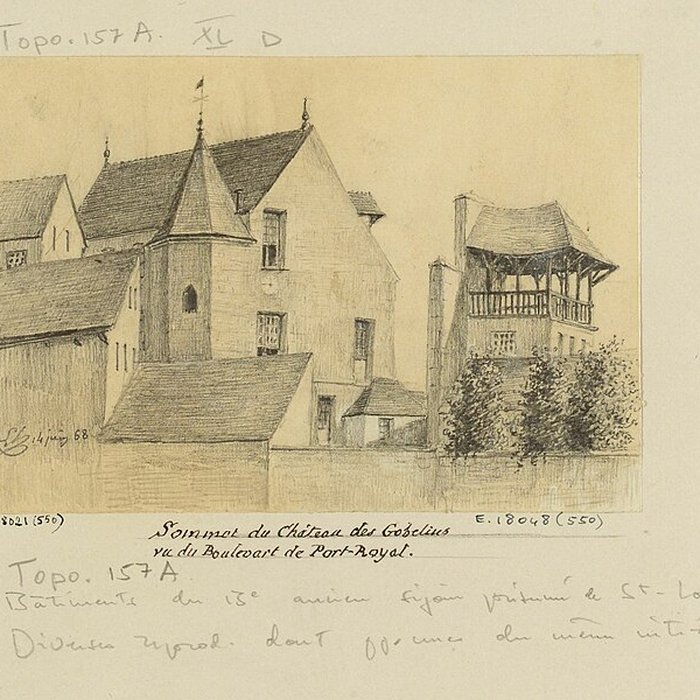 Topo. 157 A. XL D
14 juin 68
8021 (550)
E. 18048 (550)
Sommet du Château des Gobelins
vu du Boulevart de Port-Royal.
Topo. 157 A
Bâtiments du 13e ancien séjour présumé de St-Lo
Diverses reprod. dont du même